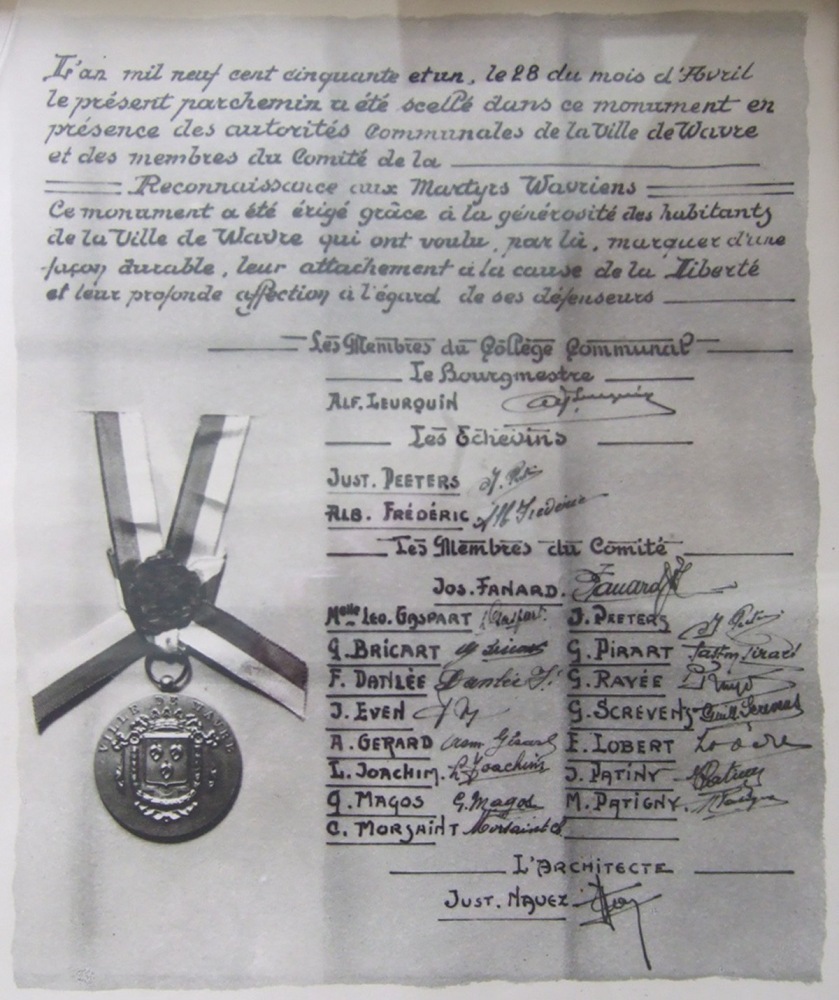 L'an mil neuf cent cinquante et un, le 28 du mois d'Avril
le présent parchemin a été scellé dans ce monument en
présence des autorités Communales de la Ville de Wavre
et des membres du Comité de la
Reconnaissance aux Martyrs Wavriens
Ce monument a été érigé grâce à la générosité des habitants
de la Ville de Wavre qui ont voulu, par là, marquer d'une
façon durable, leur attachement à la cause de la Liberté
et leur profonde affection à l'égard de ses défenseurs
Les Membres du Collège Communal
Le Bourgmestre
ALF. LEURQUIN Alf Leurquin
Les Echevins
JUST. PEETERS
ALB. FRÉDÉRIC Alb Frédéric
Les Membres du Comité
JOS. FANARD. Fanard J
Melle LEO. GASPART J. PEETERS
G. BRICART G. PIRART Gaston Pirard
F. DANLÉE Danlée F. G. RAYÉE
J. EVEN G. SCREVENS Guill. Screvens
A. GERARD Gérard F. LOBERT
L. JOACHIM. L. Joachim J. PATINY Patiny
G. MAGOS G. Magos M. PATIGNY
C. MORSAINT Morsaint C.
VILLE DE WAVRE
L'ARCHITECTE
JUST. NAVEZ